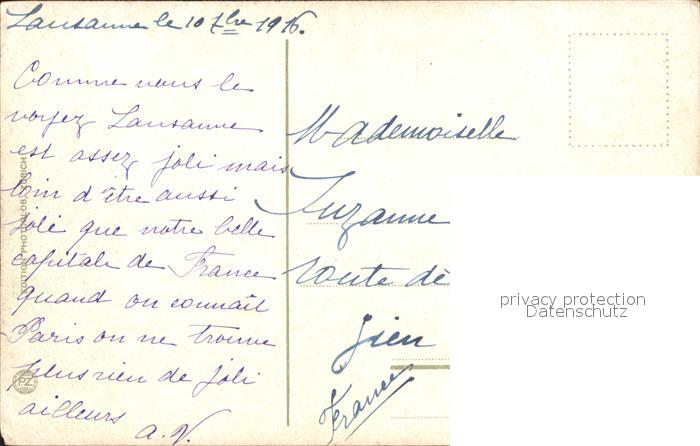 Lausanne le 10 7bre 1916.
Comme vous le
voyez Lausanne
est assez joli mais
loin d'être aussi
joli que notre belle
capitale de France
quand on connaît
Paris on ne trouve
plus rien de joli
ailleurs
A. V.
Mademoiselle
Suzanne
route de
Gien
France
EDITION PHOTOGLOB ZURICH
PZ
privacy protection
Datenschutz